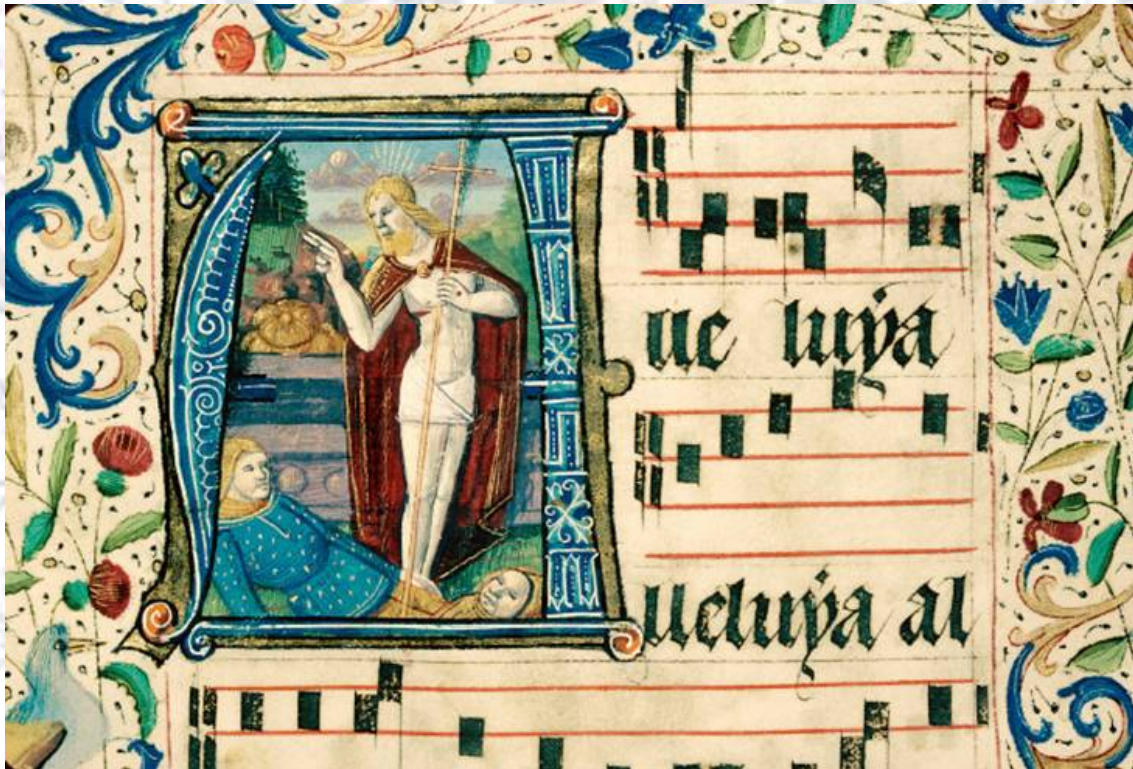 Alle luya
lleluya al